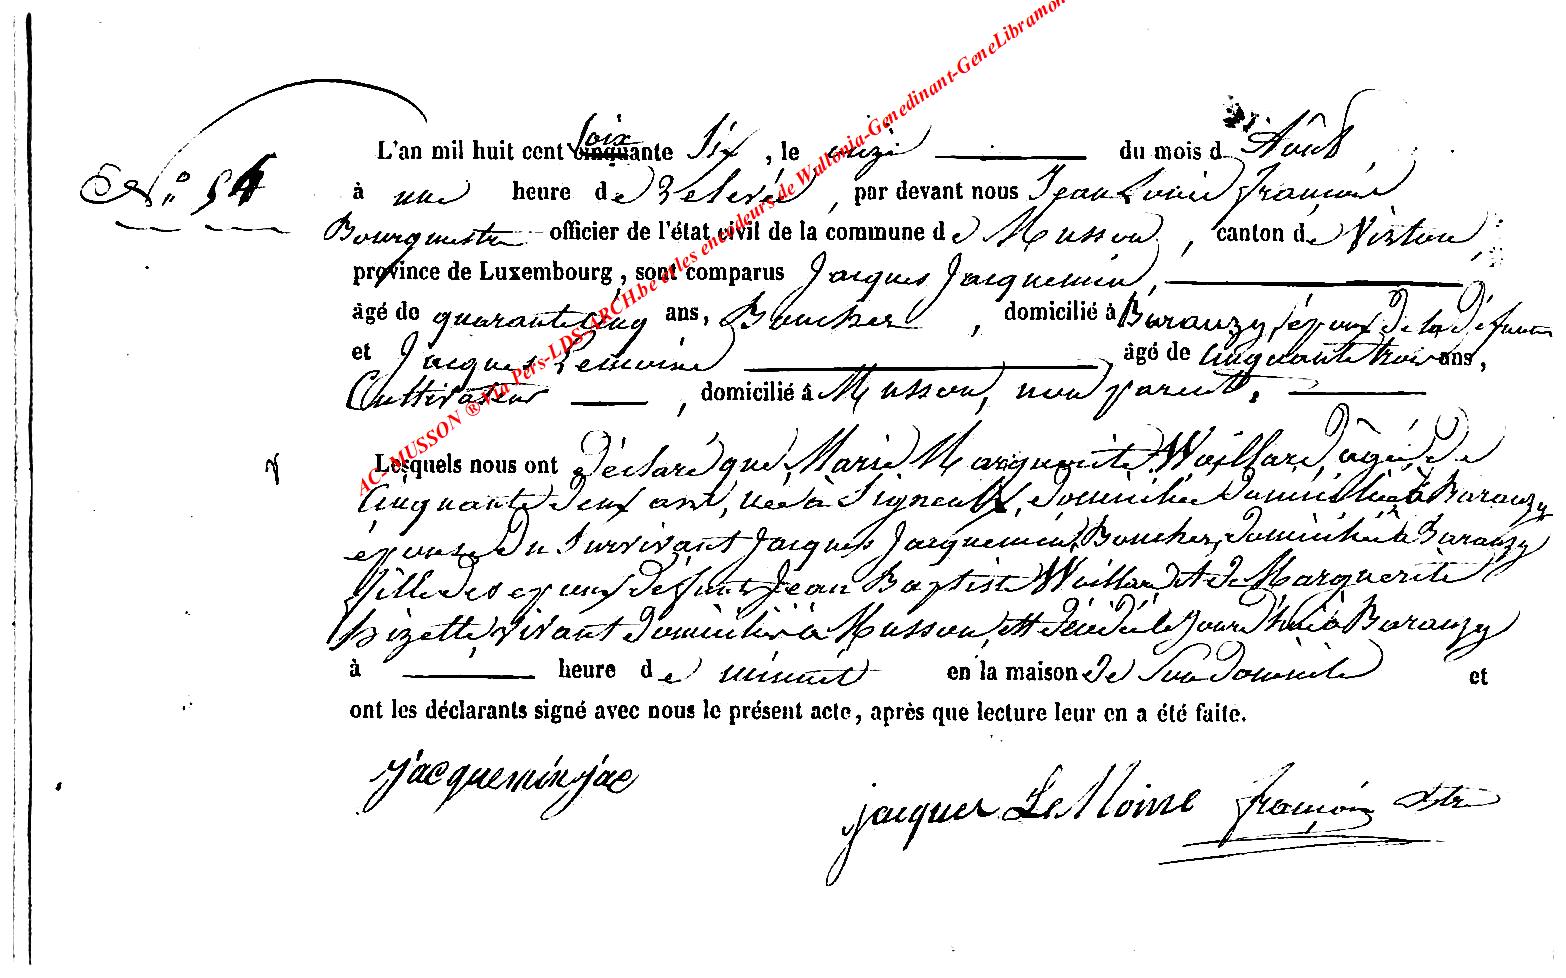 N° 54
L'an mil huit cent soixante six, le onze du mois d Août
à une heure de relevée, par devant nous Jean Louis François
Bourgmestre officier de l'état civil de la commune de Musson, canton de Virton,
province de Luxembourg, sont comparus Jacques Jacquemin,
âgé de quarante cinq ans, Boucher, domicilié à Baranzy, époux de la défunte
et Jacques Lemoine âgé de cinquante trois ans,
Cultivateur, domicilié à Musson, non parent,
Lesquels nous ont déclaré que Marie Marguerite Woillard, âgée de
cinquante deux ans, née à Signeulx, domiciliée domiciliée à Baranzy
épouse du survivant Jacques Jacquemin, Boucher, domicilié à Baranzy
fille des époux défunts Jean Baptiste Woillard et de Marguerite
Lizette, vivant domiciliés à Musson, est décédée le jourd'hui à Baranzy
à heure de minuit en la maison de son domicile et
ont les déclarants signé avec nous le présent acte, après que lecture leur en a été faite.
jacquemin jac
jacques LeMoine françois
AC-MUSSON ® via Pers-LDS-ARCH.be et les encodeurs de Wallonia-Genedinant-GeneLibramon